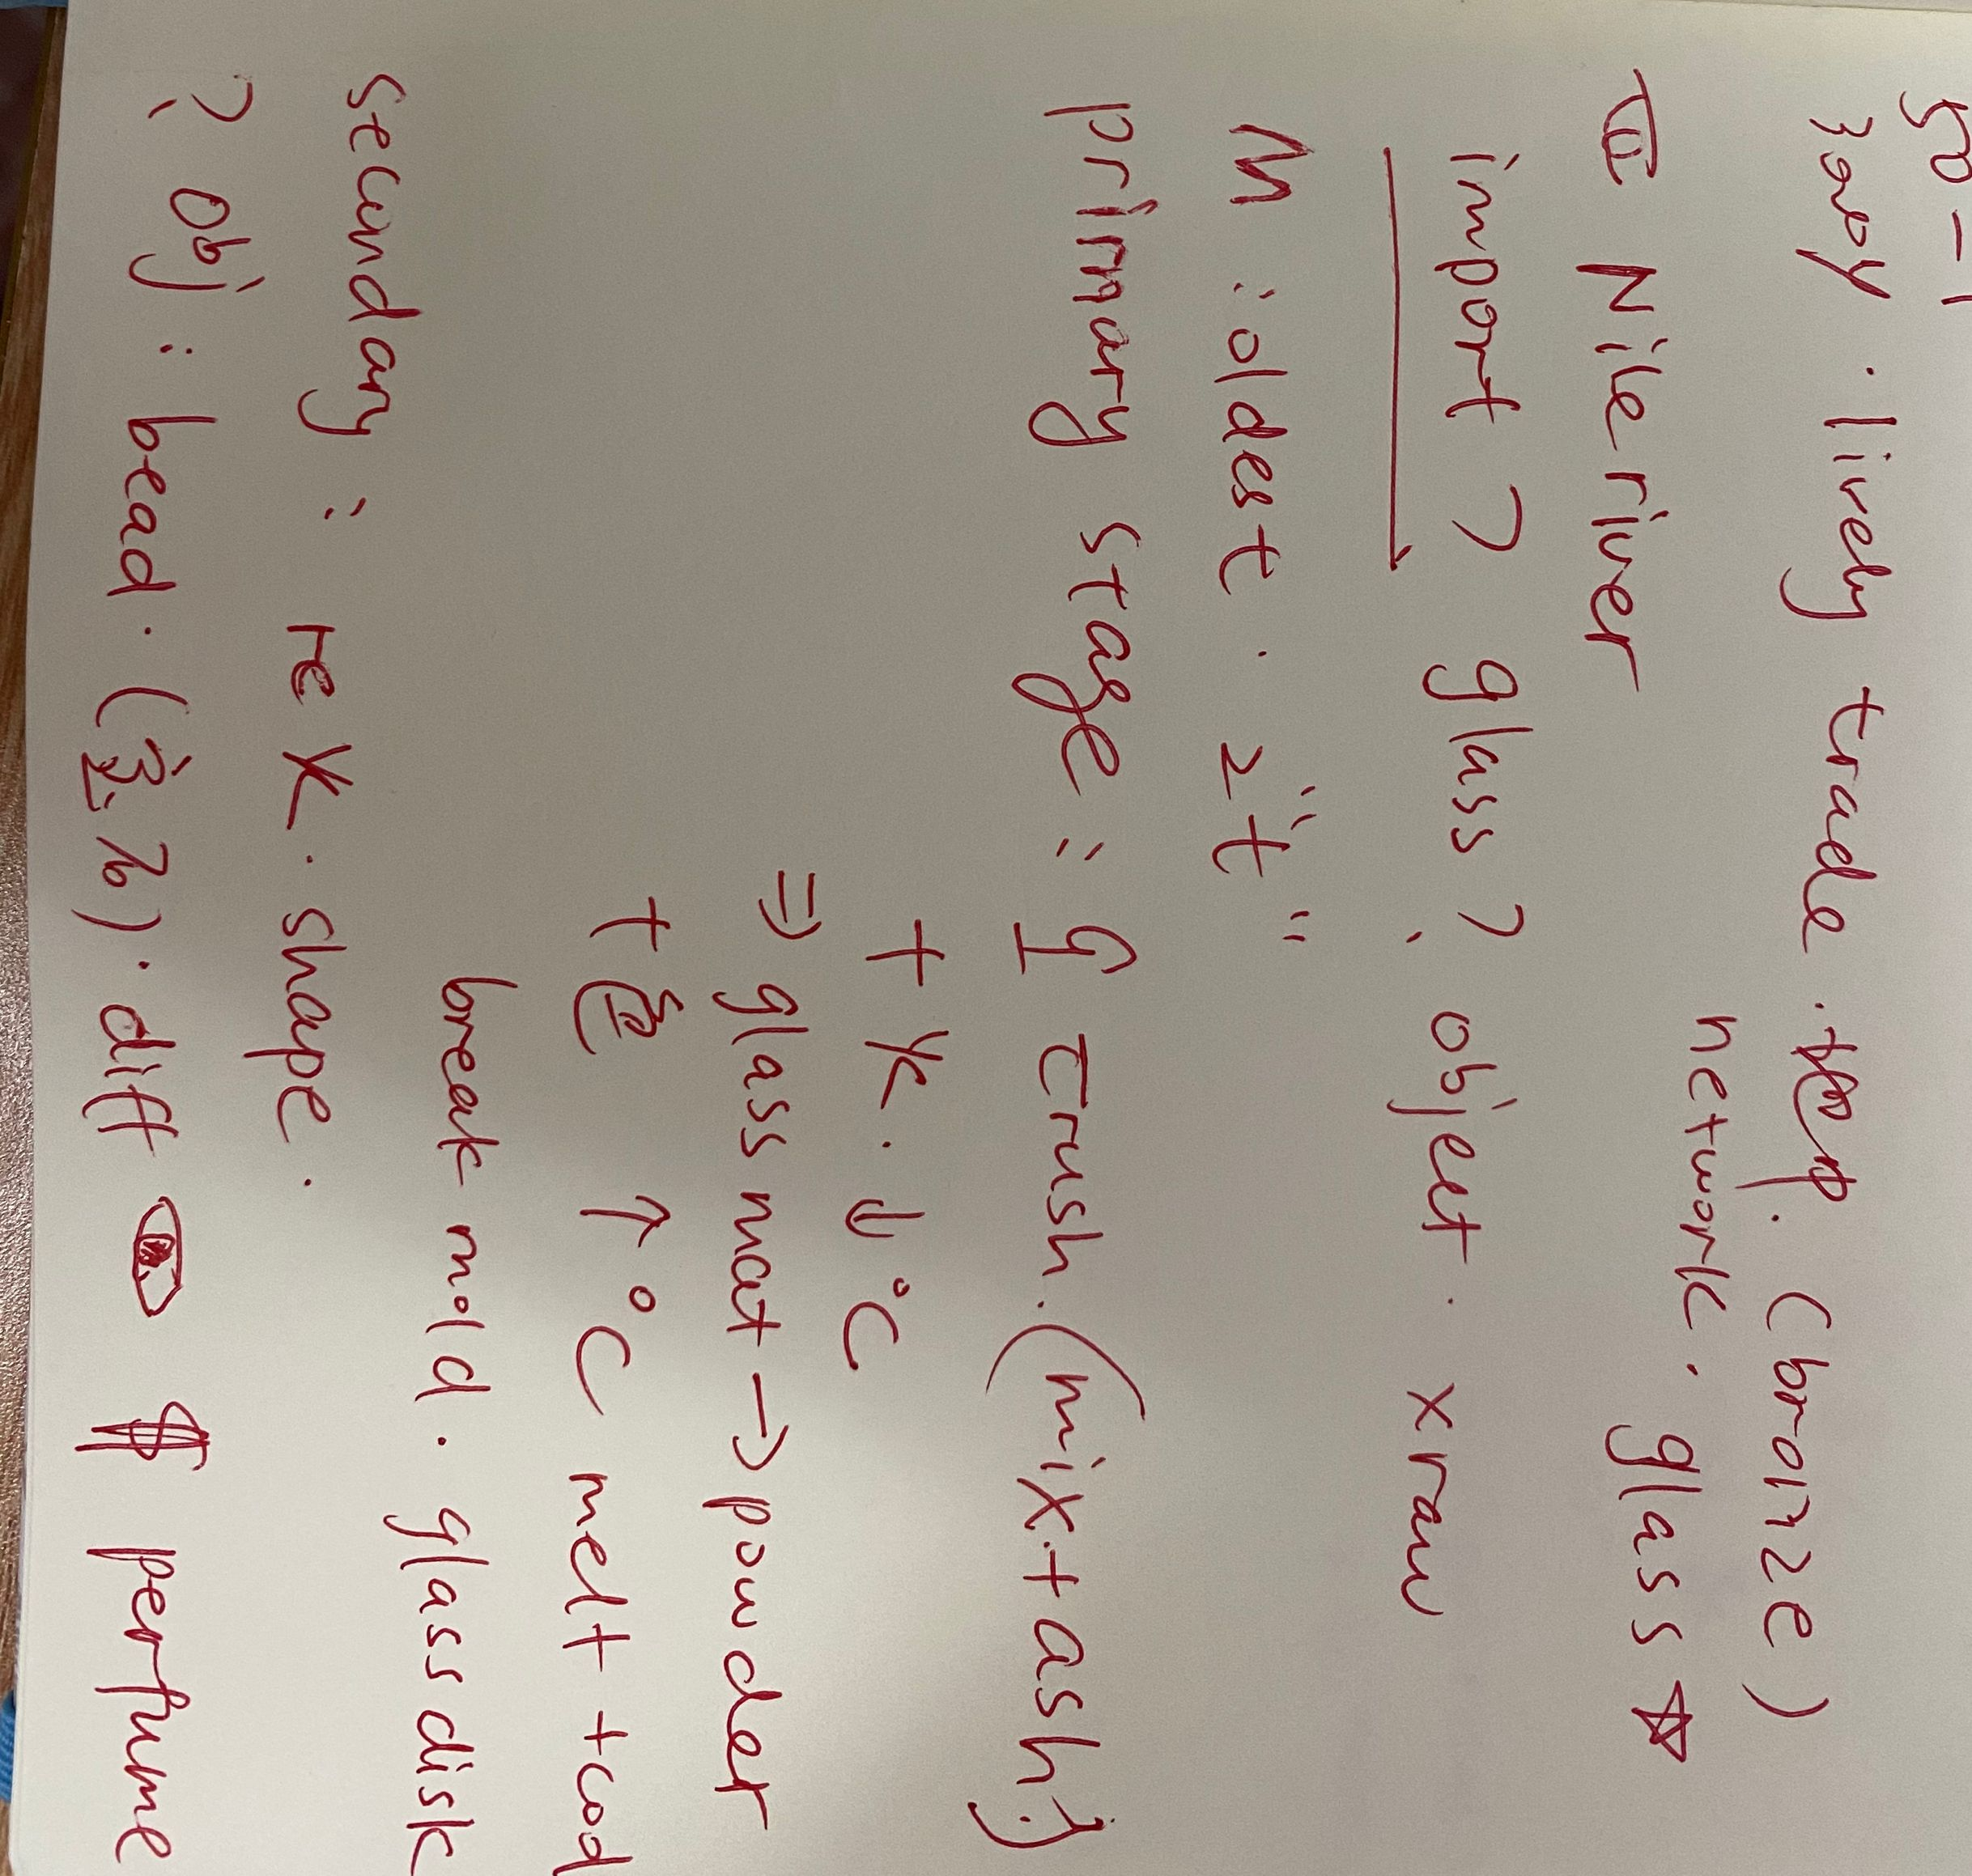 50-1
304y . lively trade . (bronze)
network . glass ☆
Nile river
import ? glass ? object . x raw
M : oldest . 2 "t"
primary stage : crush . (mix + ash)
+ 火 . ↓ °C
⇒ glass mat → powder
+ 色 ↑ °C melt + cool
break mold . glass disk
secondary : re 火 . shape .
? obj : bead . diff $ perfume